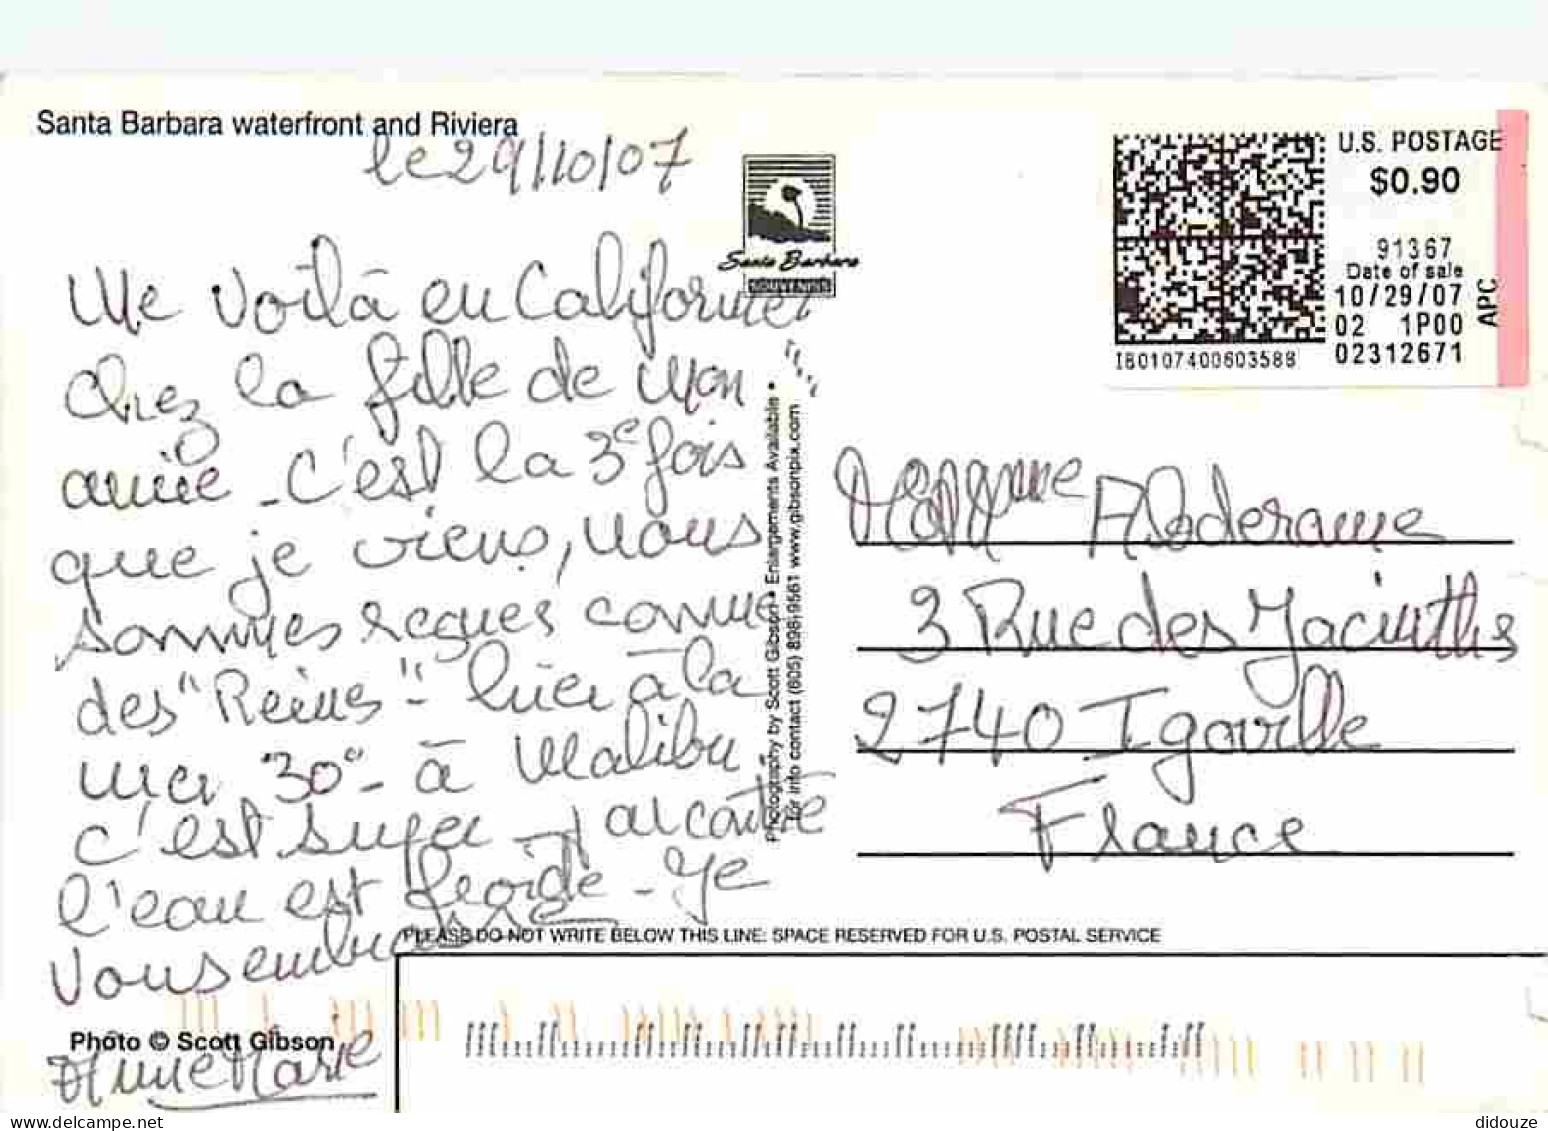 Santa Barbara waterfront and Riviera
le 29/10/07
Me voilà en Californie
chez la fille de mon
amie - c'est la 3e fois
que je viens, nous
sommes reçues comme
des "Reines" - hier à la
mer 30° - à Malibu
c'est super - par contre
l'eau est froide - Je
vous embrasse
Anne Marie
Photo © Scott Gibson
Santa Barbara
SOUVENIRS
Photography by Scott Gibson • Enlargements Available •
for info contact (805) 896-9561 www.gibsonpix.com
U.S. POSTAGE
$0.90
91367
Date of sale
10/29/07
02 1P00
02312671
APC
I80107400603588
3 Rue des Jacinthes
2740 Igoville
France
PLEASE DO NOT WRITE BELOW THIS LINE: SPACE RESERVED FOR U.S. POSTAL SERVICE
www.delcampe.net
didouze